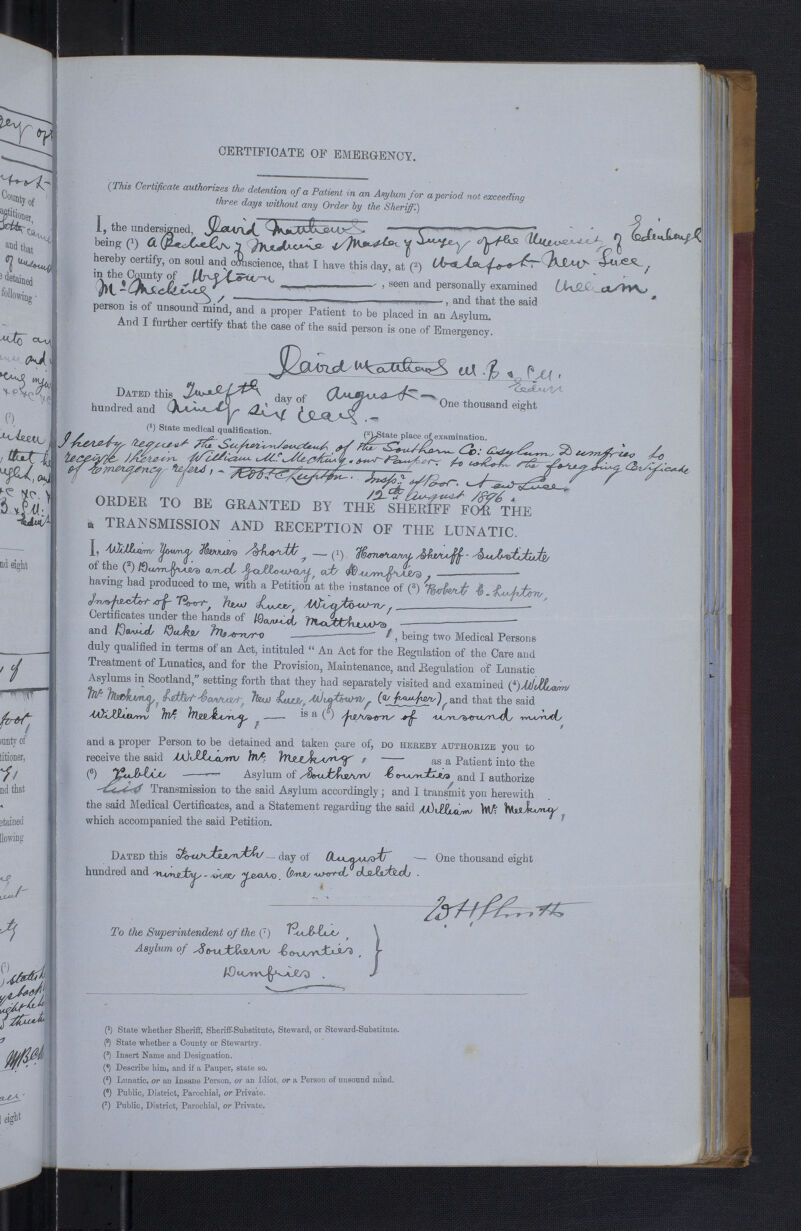 CERTIFICATE OF EMERGENCY.
(This Certificate authorizes the detention of a Patient in an Asylum for a period not exceeding
three days without any Order by the Sheriff.)
I, the undersigned, David Matthews
being (1) a Bachelor of Medicine & Master of Surgery of the University of Edinburgh
hereby certify, on soul and conscience, that I have this day, at (2) Waterfoot New Luce,
in the County of Wigtown, seen and personally examined William
Mc Meeking, and that the said
person is of unsound mind, and a proper Patient to be placed in an Asylum.
And I further certify that the case of the said person is one of Emergency.
David Matthews M.B & C.M.
Edin
DATED this Twelfth day of August One thousand eight
hundred and Ninety six years.-
(1) State medical qualification. (2) State place of examination.
I hereby request the Superintendent of the Southern Co: Asylum Dumfries to
receive therein William Mc Meeking, our Pauper, to whom the foregoing Certificate
of Emergency refers, - Robt. C Lupton. Inspr. of Poor. New Luce.
12th August 1896.
ORDER TO BE GRANTED BY THE SHERIFF FOR THE
TRANSMISSION AND RECEPTION OF THE LUNATIC.
I, William Young Herries Shortt, — (1) Honorary Sheriff-Substitute
of the (2) Dumfries and Galloway, at Dumfries,
having had produced to me, with a Petition at the instance of (3) Robert C. Lupton,
Inspector of Poor, New Luce, Wigtown,
Certificates under the hands of David Matthews
and David Duke Monro, being two Medical Persons
duly qualified in terms of an Act, intituled "An Act for the Regulation of the Care and
Treatment of Lunatics, and for the Provision, Maintenance, and Regulation of Lunatic
Asylums in Scotland," setting forth that they had separately visited and examined (4) William
Mc Meeking, Letter Carrier, New Luce, Wigtown, (a pauper), and that the said
William Mc Meeking, — is a (5) person of unsound mind,
and a proper Person to be detained and taken care of, DO HEREBY AUTHORIZE you to
receive the said William Mc Meeking, — as a Patient into the
(6) Public — Asylum of Southern Counties, and I authorize
his Transmission to the said Asylum accordingly; and I transmit you herewith
the said Medical Certificates, and a Statement regarding the said William Mc Meeking,
which accompanied the said Petition.
DATED this Fourteenth day of August — One thousand eight
hundred and ninety-six years. One word deleted.
W.H. Shortt
To the Superintendent of the (7) Public,
Asylum of Southern Counties,
Dumfries.
(1) State whether Sheriff, Sheriff-Substitute, Steward, or Steward-Substitute.
(2) State whether a County or Stewartry.
(3) Insert Name and Designation.
(4) Describe him, and if a Pauper, state so.
(5) Lunatic, or an Insane Person, or an Idiot, or a Person of unsound mind.
(6) Public, District, Parochial, or Private.
(7) Public, District, Parochial, or Private.